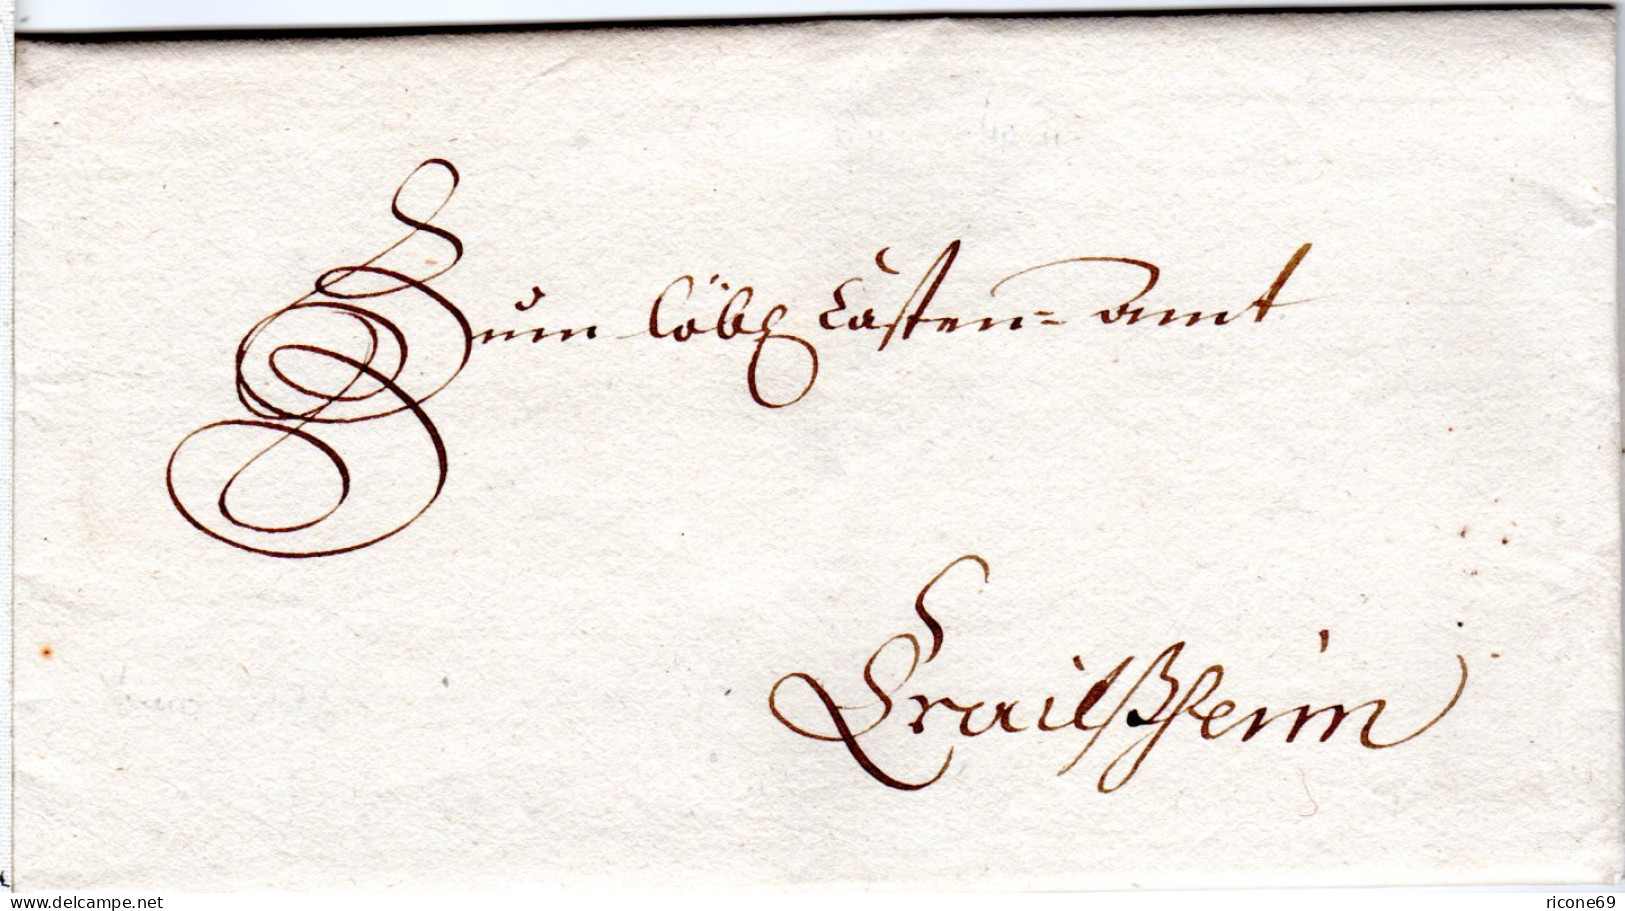 Zum löbl Casten-amt
Crailßheim
delcampe.net
ricone69